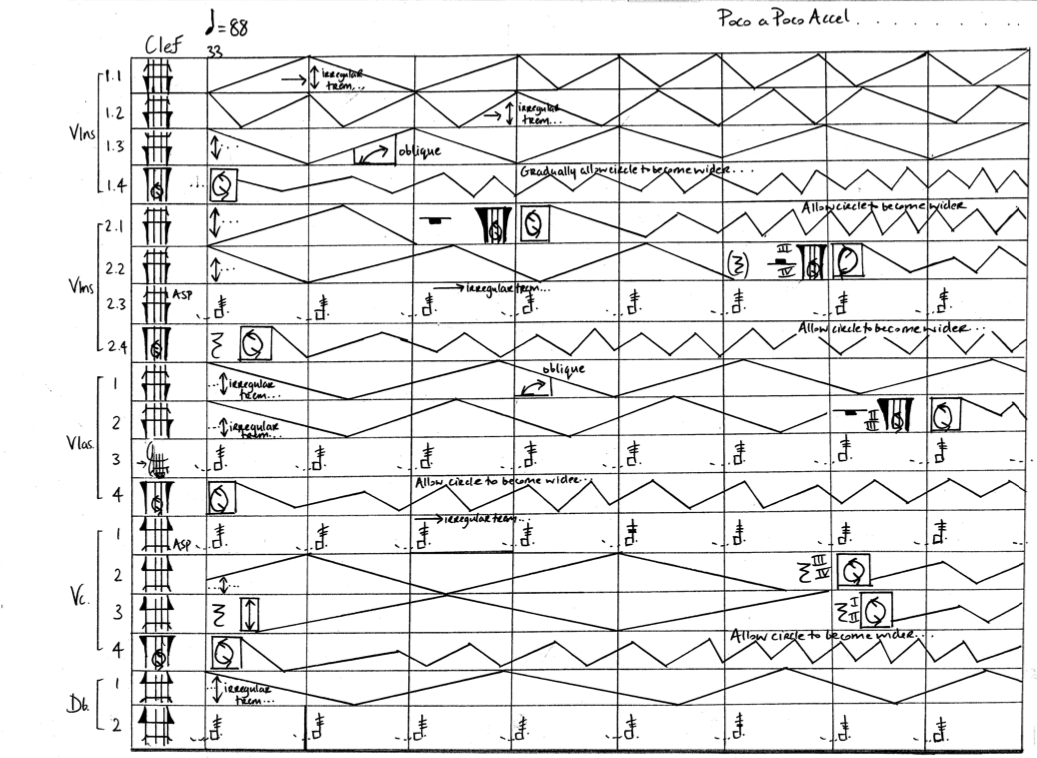 ♩=88
Poco a Poco Accel. . . . . . . . .
Clef
33
Vlns
1.1
→ irregular trem...
1.2
→ irregular trem...
1.3
oblique
1.4
Gradually allow circle to become wider....
Vlns
2.1
Allow circle to become wider
2.2
III
IV
2.3
ASP
→ irregular trem...
2.4
Allow circle to become wider...
Vlas.
1
irregular trem...
oblique
2
irregular trem...
II
III
3
4
Allow circle to become wider...
Vc.
1
ASP
→ irregular trem...
2
III
IV
3
I
II
4
Allow circle to become wider...
Db.
1
irregular trem...
2